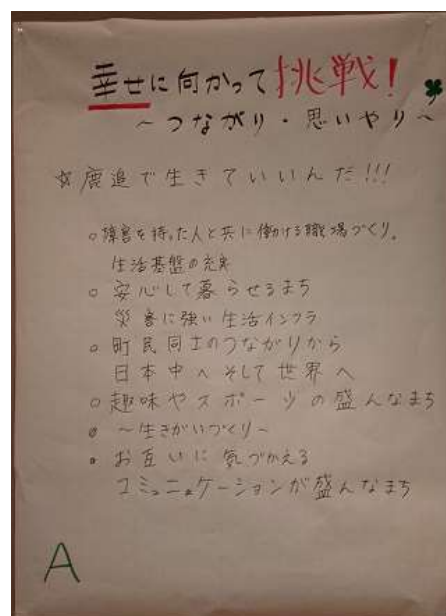 幸せに向かって挑戦!
～つながり・思いやり～
☆鹿追で生きていいんだ!!!
○障害を持った人と共に働ける職場づくり。
生活基盤の充実
○安心して暮らせるまち
災害に強い生活インフラ
○町民同士のつながりから
日本中へそして世界へ
○趣味やスポーツの盛んなまち
○～生きがいづくり～
○お互いに気づかえる
コミュニュケーションが盛んなまち
A